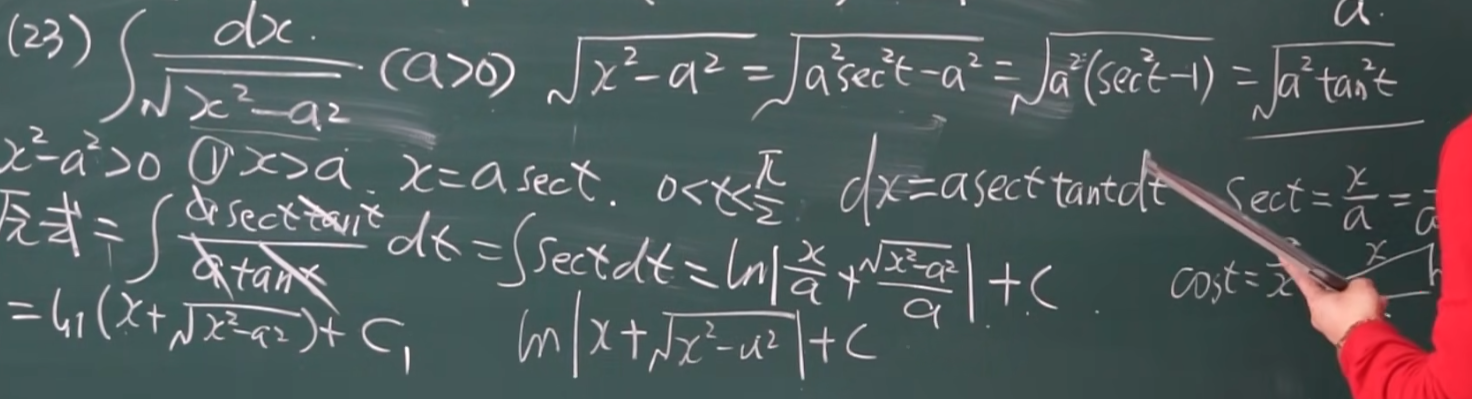 a.
(23) ∫ dx/√(x²-a²) (a>0) √(x²-a²) = √(a²sec²t-a²) = √(a²(sec²t-1)) = √(a²tan²t)
x²-a²>0 ① x>a. x=a sect. 0<t<π/2 dx=asect tant dt sect = x/a =
原式 = ∫ (a sect tant)/(a tant) dt = ∫ sect dt = ln|x/a + √(x²-a²)/a| + C. cost=
= ln(x+√(x²-a²)) + C₁ ln|x+√(x²-a²)| + C
x